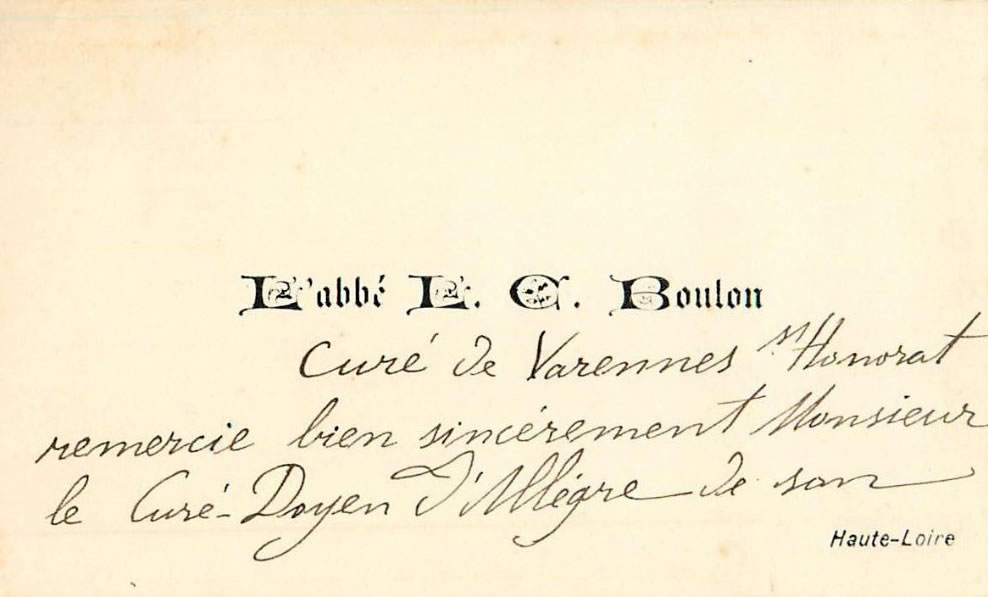 L'abbé L. C. Boulon
Curé de Varennes St Honorat
remercie bien sincèrement Monsieur
le Curé-Doyen d'Allègre de son
Haute-Loire